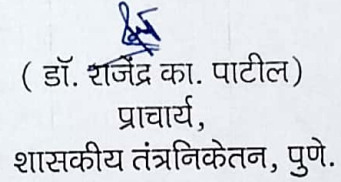 ( डॉ. राजेंद्र का. पाटील)
प्राचार्य,
शासकीय तंत्रनिकेतन, पुणे.